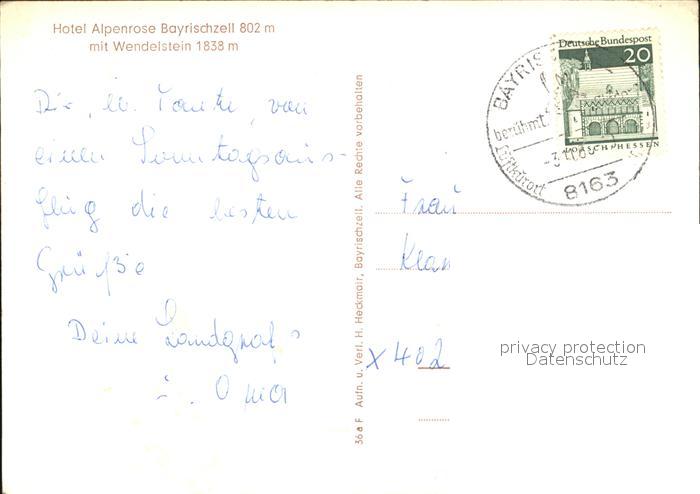 Hotel Alpenrose Bayrischzell 802 m
mit Wendelstein 1838 m
Dir, lb. Tante, von
einem Sonntagsaus-
flug die besten
Grüße
Deine Landgraf's
u. Oma
36a F Aufn. u. Verl. H. Heckmair, Bayrischzell. Alle Rechte vorbehalten
Deutsche Bundespost
20
LORSCH HESSEN
BAYRIS
berühmt
Luftkurort
8163
Frau
x 402
privacy protection
Datenschutz